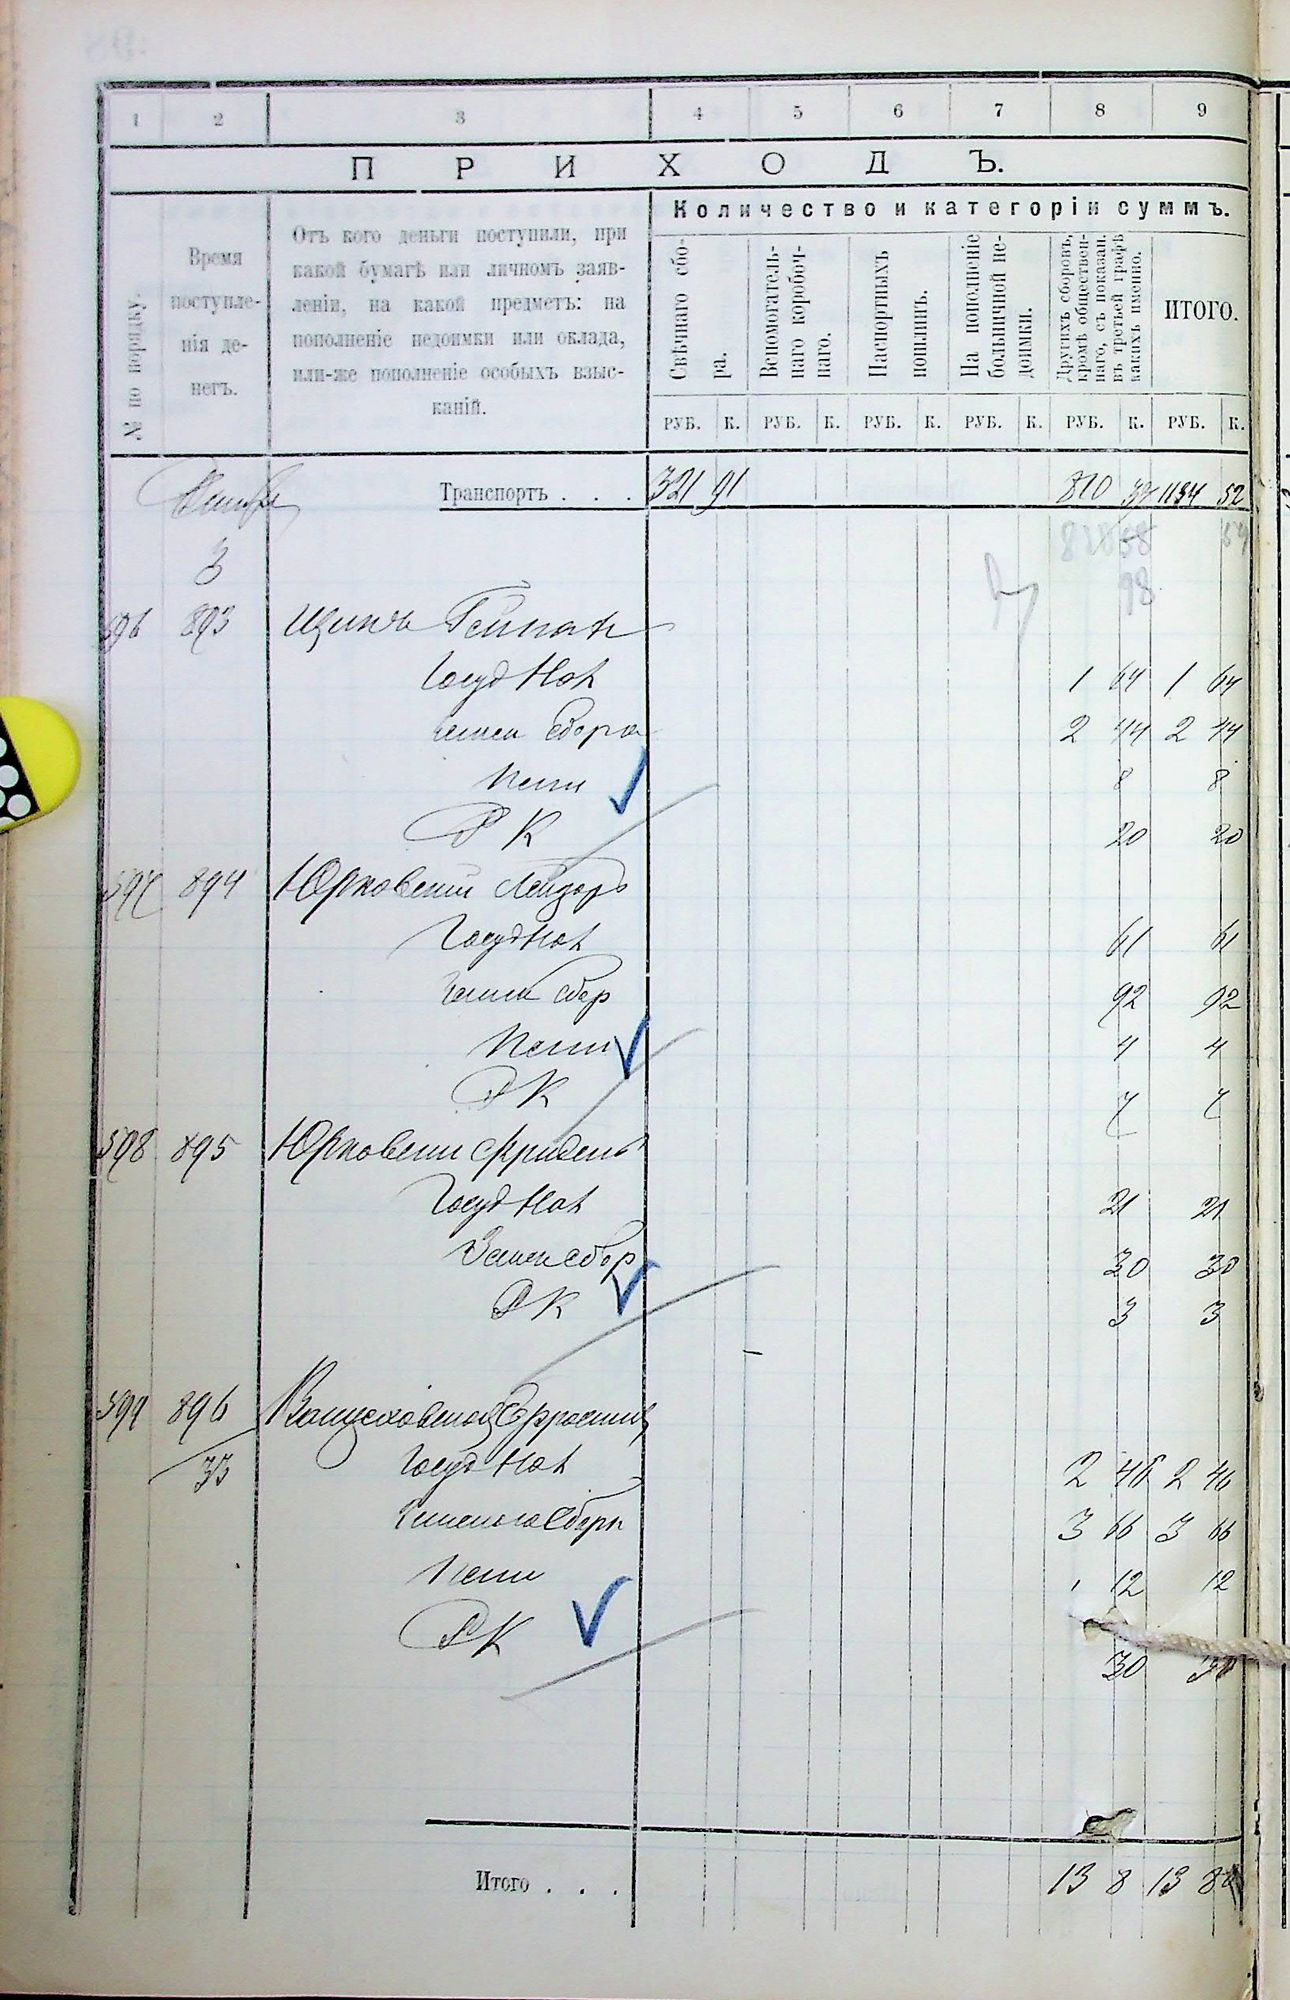 1 2 3 4 5 6 7 8 9
ПРИХОДЪ.
№ по порядку.
Время поступле-
нія де-
негъ.
Отъ кого деньги поступили, при
какой бумагѣ или личномъ заяв-
леніи, на какой предметъ: на
пополненіе недоимки или оклада,
или-же пополненіе особыхъ взыс-
каній.
Количество и категоріи суммъ.
Свѣчнаго сбо-
ра.
Вспомогатель-
наго коробоч-
наго.
Паспортныхъ
пошлинъ.
На пополненіе
больничной не-
доимки.
Другихъ сборовъ,
кромѣ обществен-
наго, съ показан.
въ третьей графѣ
какихъ именно.
ИТОГО.
РУБ. К. РУБ. К. РУБ. К. РУБ. К. РУБ. К. РУБ. К.
Транспортъ . . . 321 91 810 37 1134 52
3
98
596 893
Госуд Нал 1 64 1 64
сбора 2 44 2 44
Пени 8 8
Р К 20 20
597 894 Юрковскій Лейзоръ
Госуд Нал 61 61
Земск сбор 92 92
Пени 4 4
Р К 7 7
598 895 Юрковскій
Госуд Нал 21 21
Земск сбор 30 30
Р К 3 3
599 896
33 Госуд Нал 2 46 2 46
3 66 3 66
Пени 12 12
Р К 30 30
Итого . . . 13 8 13 8